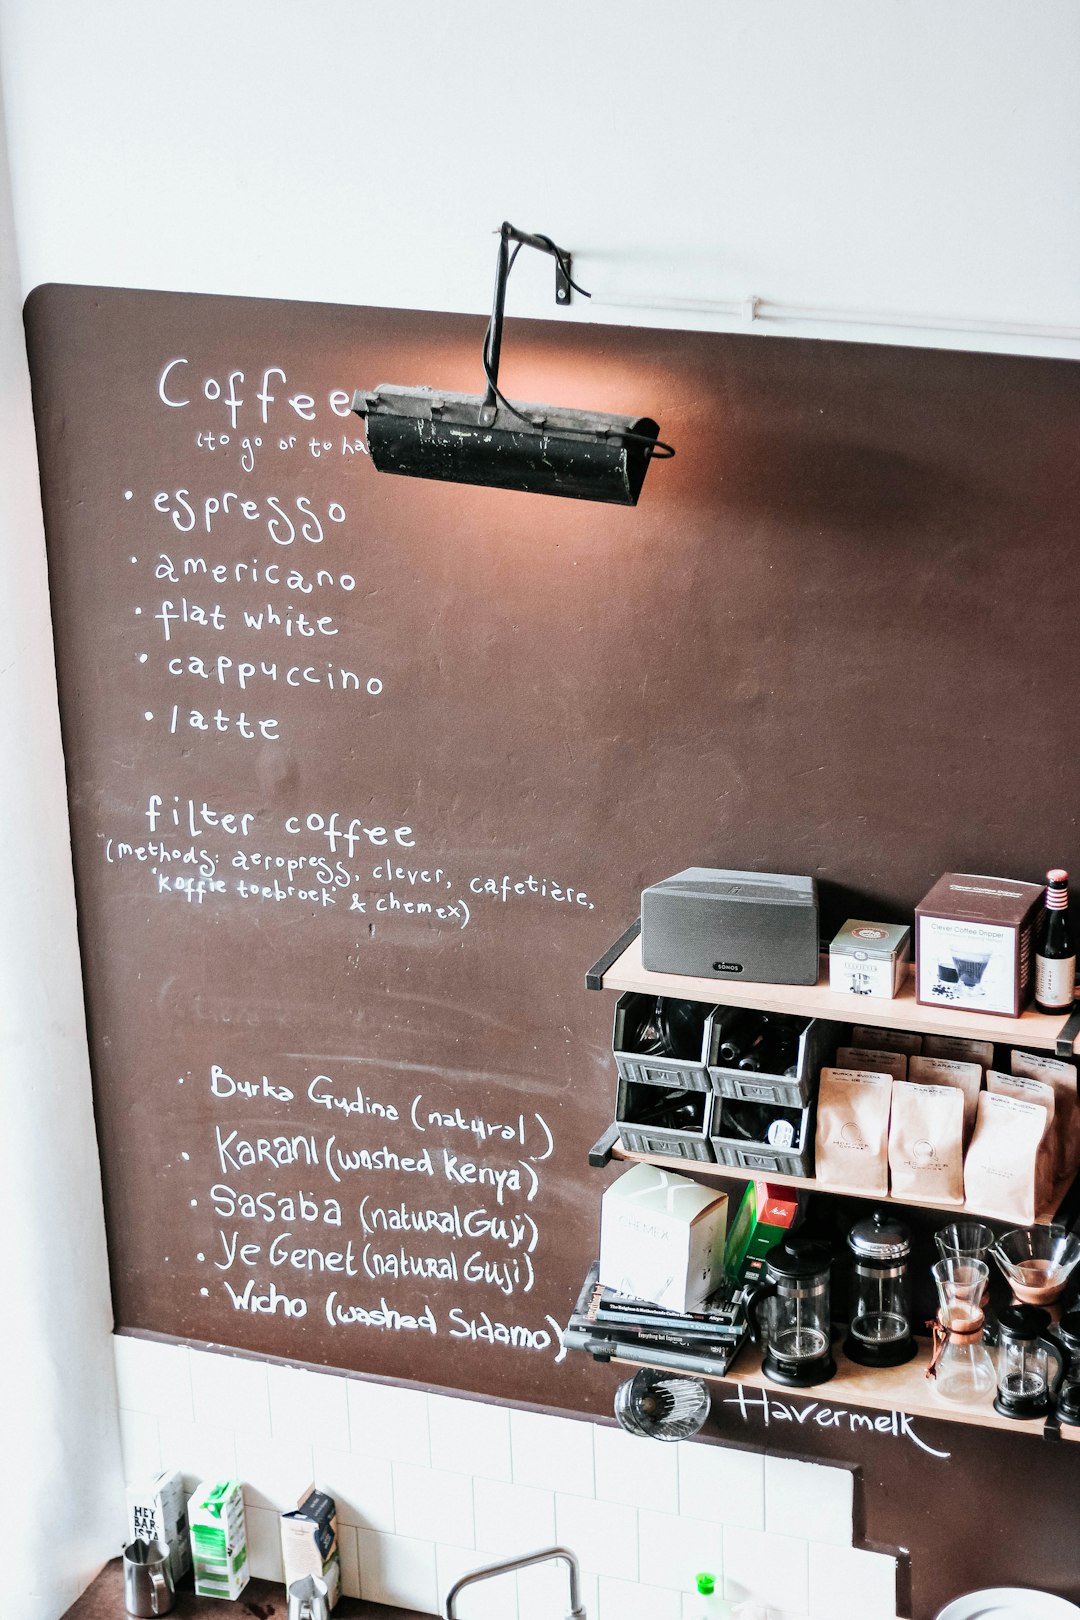 Coffee
(to go or to ha
• espresso
• americano
• flat white
• cappuccino
• latte
filter coffee
(methods: aeropress, clever, cafetière,
'Koffie toebroek' & chemex)
• Burka Gudina (natural)
• KARANI (washed Kenya)
• Sasaba (natural Guji)
• Ye Genet (natural Guji)
• Wicho (washed Sidamo)
SONOS
Clever Coffee Dripper
CHEMEX
Melitta
Everything but Espresso
Havermelk
HEY
BAR
ISTA